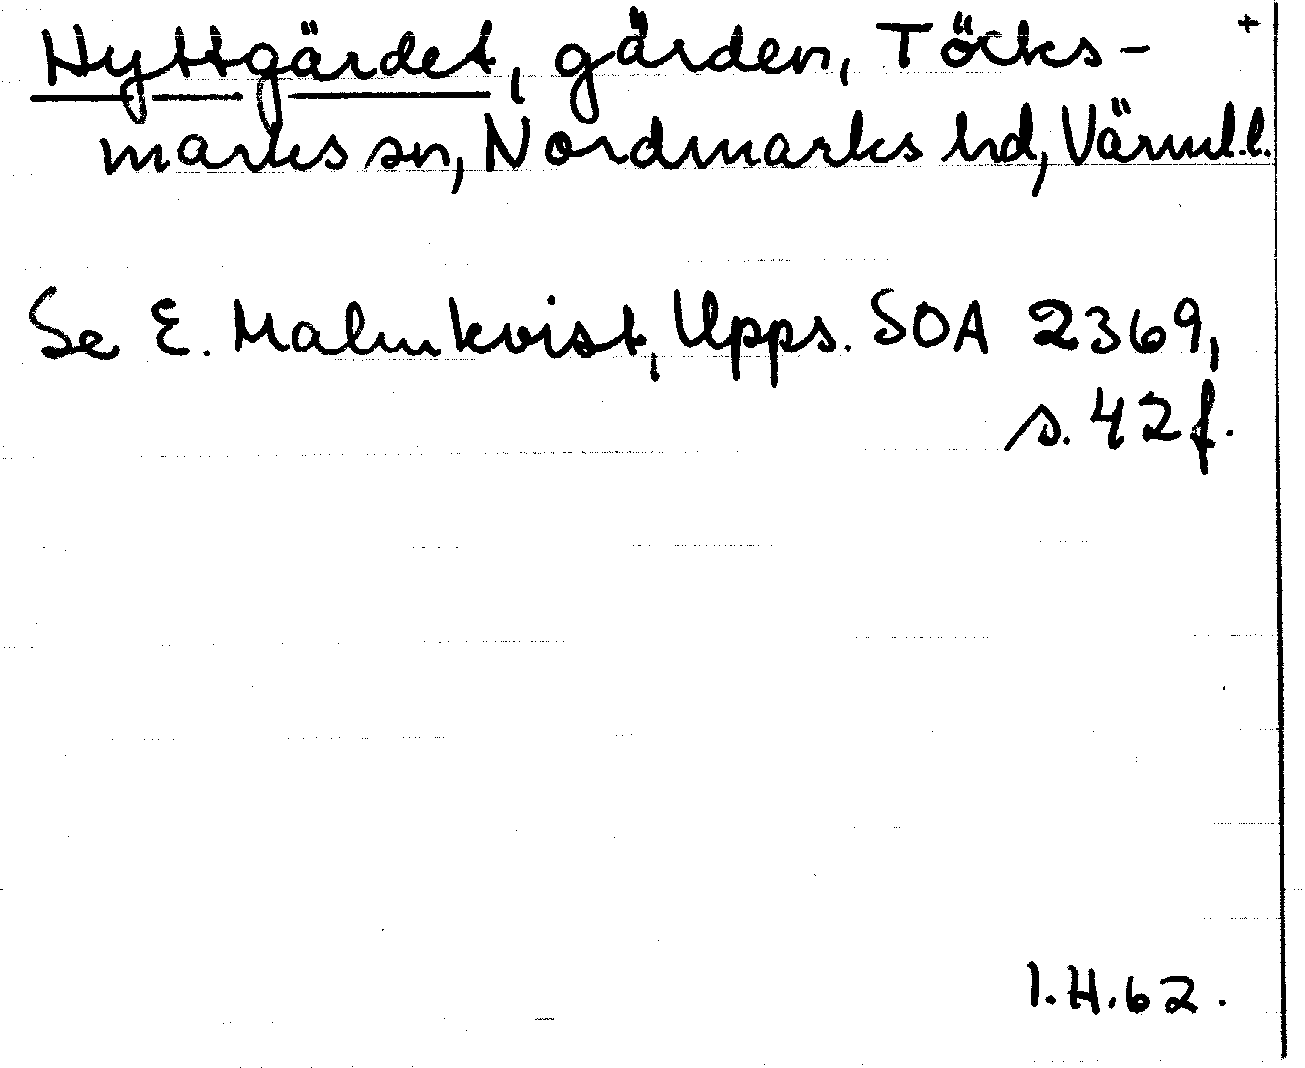 Hyttgärdet, gärden, Töcks- +
marks sn, Nordmarks hd, Värml.l.
Se E. Malmkvist, Upps. SOA 2369,
s. 42 f.
I.H.62.